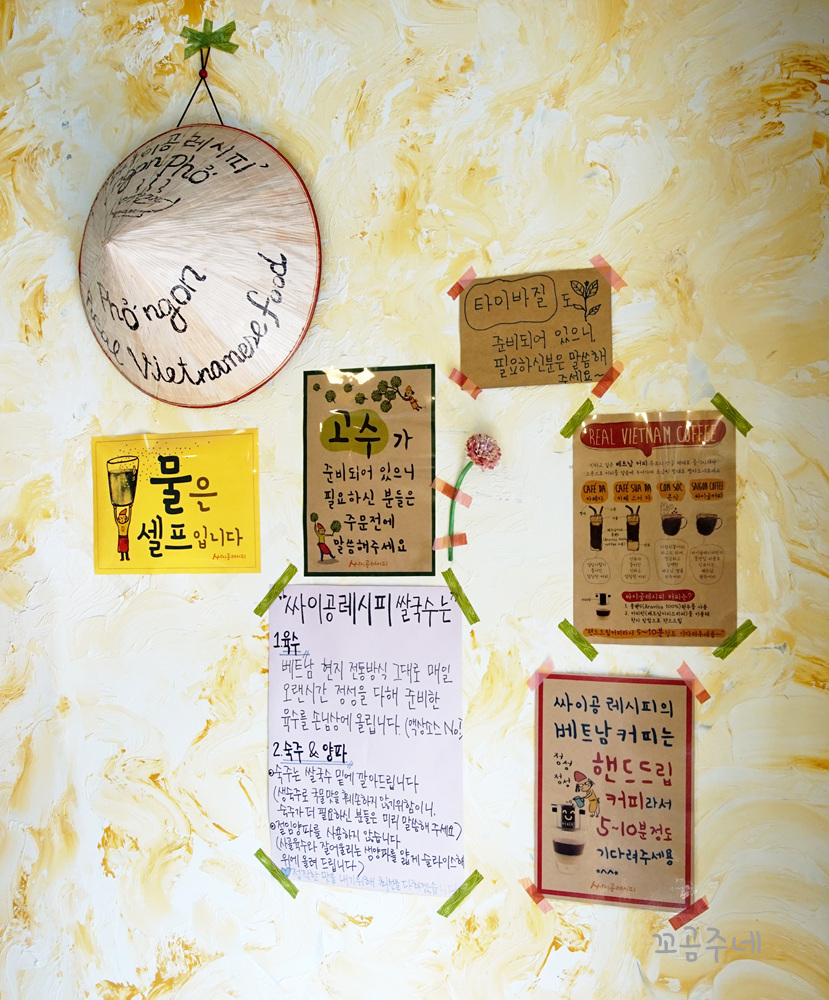 싸이공레시피'
Ngon Phở
Phở ngon
Real Vietnamese food
타이바질도
준비되어 있으니
필요하신분은 말씀해
주세요~
고수가
준비되어 있으니
필요하신 분들은
주문전에
말씀해주세요
싸이공레시피
물은
셀프입니다
싸이공레시피
REAL VIETNAM COFFEE
CAFÉ DA
CAFÉ SUA DA
CON SOC
SAIGON COFFEE
싸이공레시피 커피는?
5~10분
"싸이공레시피 쌀국수는"
1.육수
베트남 현지 전통방식 그대로 매일
오랜시간 정성을 다해 준비한
육수를 손님상에 올립니다. (액상소스 No!)
2.숙주 & 양파
숙주는 쌀국수 밑에 깔아드립니다
(생숙주로 국물맛을 훼손하지 않기위함이니,
숙주가 더 필요하신 분들은 미리 말씀해 주세요)
절임양파를 사용하지 않습니다
(사골육수와 잘어울리는 생양파를 얇게 슬라이스해
위에 올려 드립니다)
싸이공 레시피의
베트남 커피는
정성
정성
핸드드립
커피라서
5~10분정도
기다려주세용
싸이공레시피
꼬곰주네